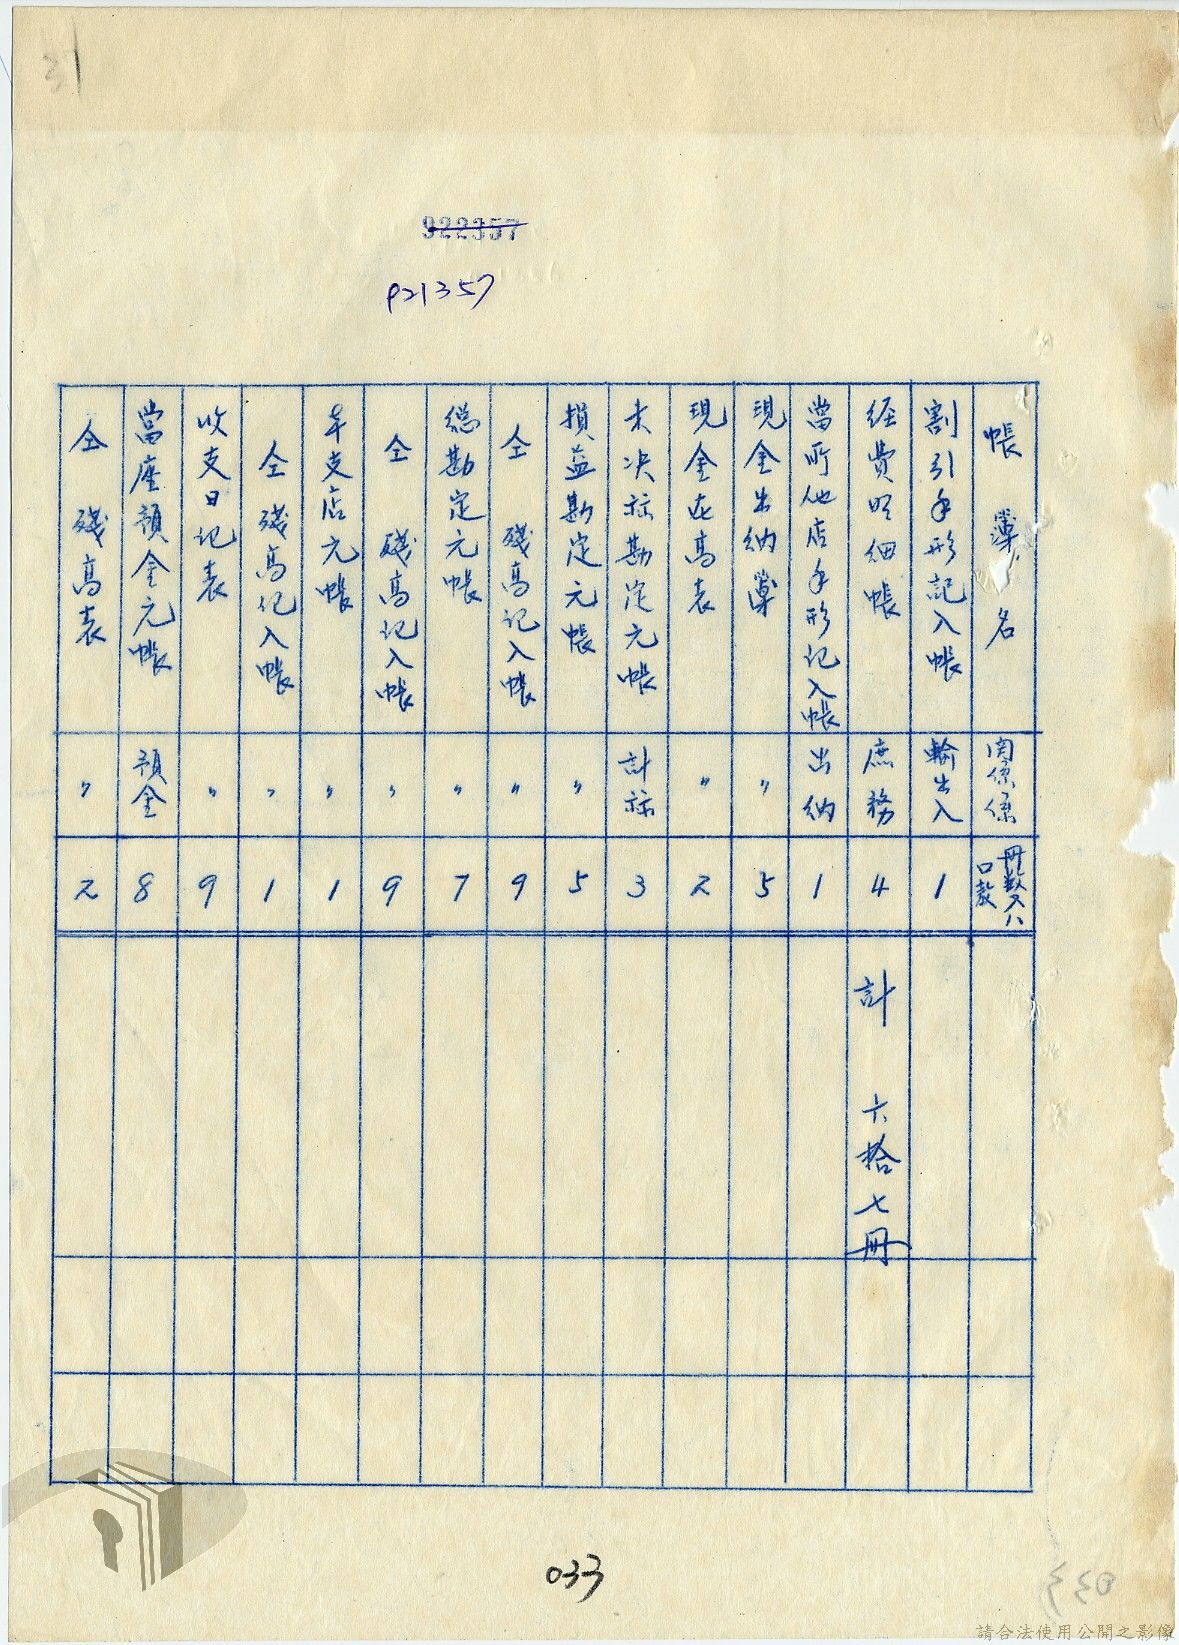 31
922357
921357
帳簿名 関係係 冊数又ハ口数
割引手形記入帳 輸出入 1
経費明細帳 庶務 4 計 六拾七冊
當所他店手形記入帳 出納 1
現金出納簿 〃 5
現金在高表 〃 2
未决算勘定元帳 計算 3
損益勘定元帳 〃 5
仝 残高記入帳 〃 9
総勘定元帳 〃 7
仝 残高記入帳 〃 9
本支店元帳 〃 1
仝 残高記入帳 〃 1
收支日記表 〃 9
當座預金元帳 預金 8
仝 残高表 〃 2
033
033
請合法使用公開之影像